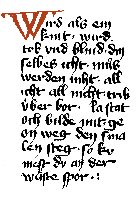 Wird als ein
kint. wird
tob vnd blind. din
selbes icht müs
werden niht. all
icht all nicht trib
über bor. la stat
och bilde mit. ge
on weg den sma
len steg. so kv
mest dv an der
wüste spor.: